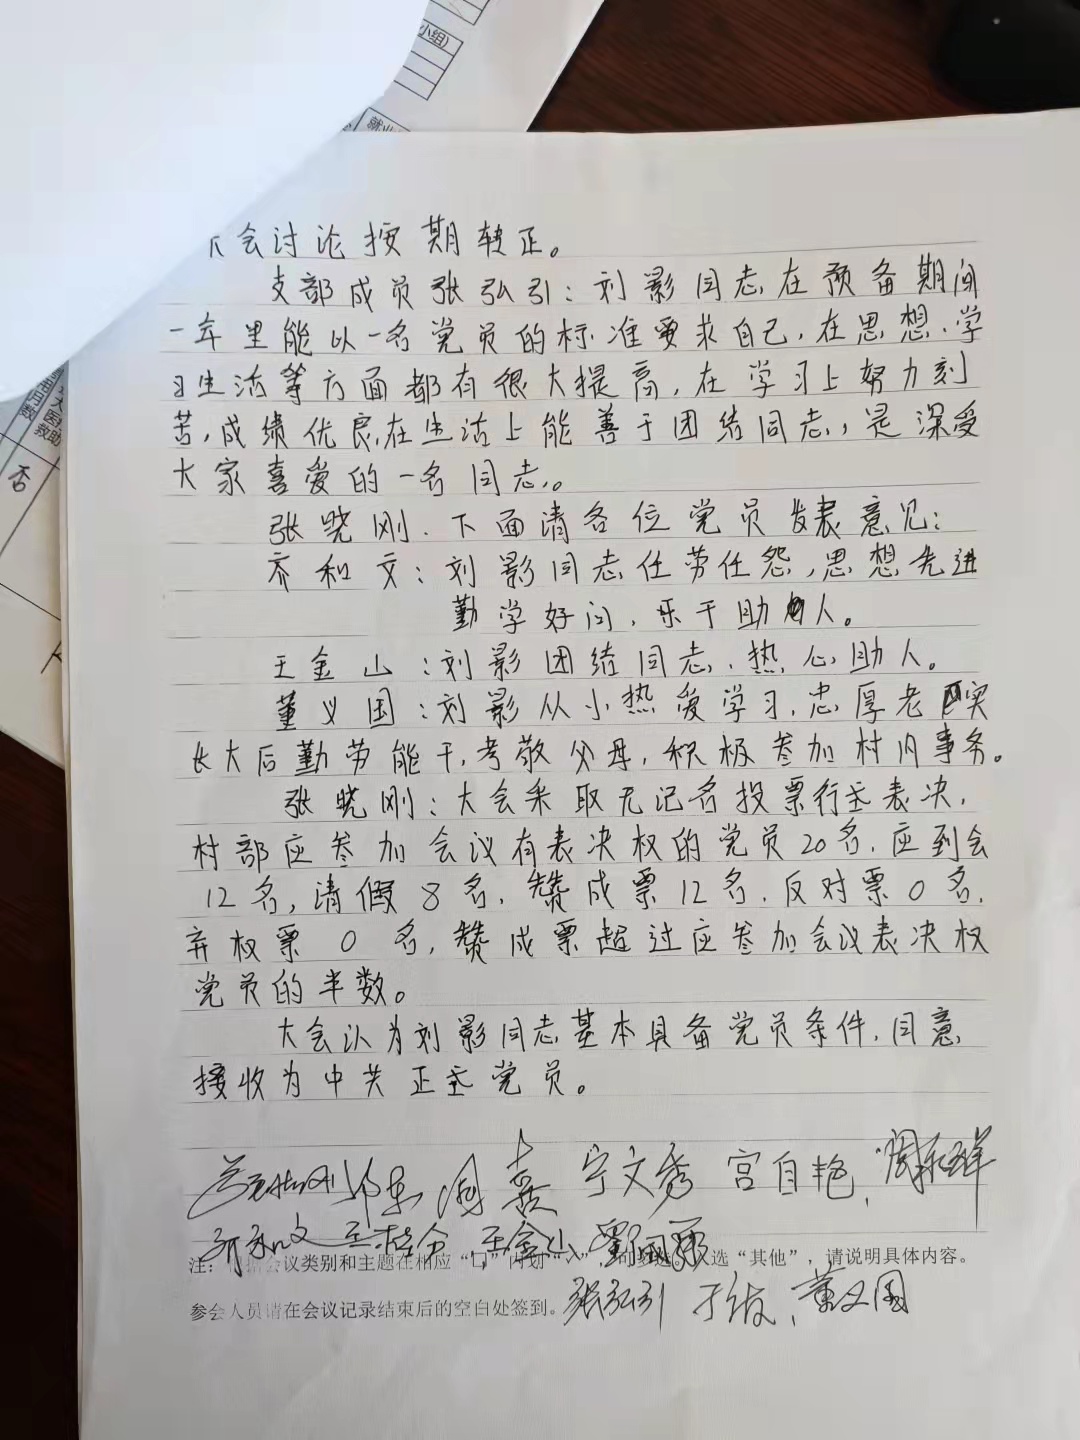 小组)
就业
用月数
大医
救助
否
会讨论按期转正。
支部成员张弘引：刘影同志在预备期间
一年里能以一名党员的标准要求自己，在思想、学
习生活等方面都有很大提高，在学习上努力刻
苦，成绩优良，在生活上能善于团结同志，是深受
大家喜爱的一名同志。
张晓刚：下面请各位党员发表意见：
齐和文：刘影同志任劳任怨，思想先进
勤学好问，乐于助人。
王金山：刘影团结同志，热心助人。
董义国：刘影从小热爱学习，忠厚老实
长大后勤劳能干，孝敬父母，积极参加村内事务。
张晓刚：大会采取无记名投票行式表决，
村部应参加会议有表决权的党员20名，应到会
12名，请假8名，赞成票12名，反对票0名，
弃权票0名，赞成票超过应参加会议表决权
党员的半数。
大会认为刘影同志基本具备党员条件，同意
接收为中共正式党员。
宁文秀 宫自艳
齐和文 王金山
注：会议类别和主题在相应“口”内划 选“其他”，请说明具体内容。
参会人员请在会议记录结束后的空白处签到。张弘引 董义国